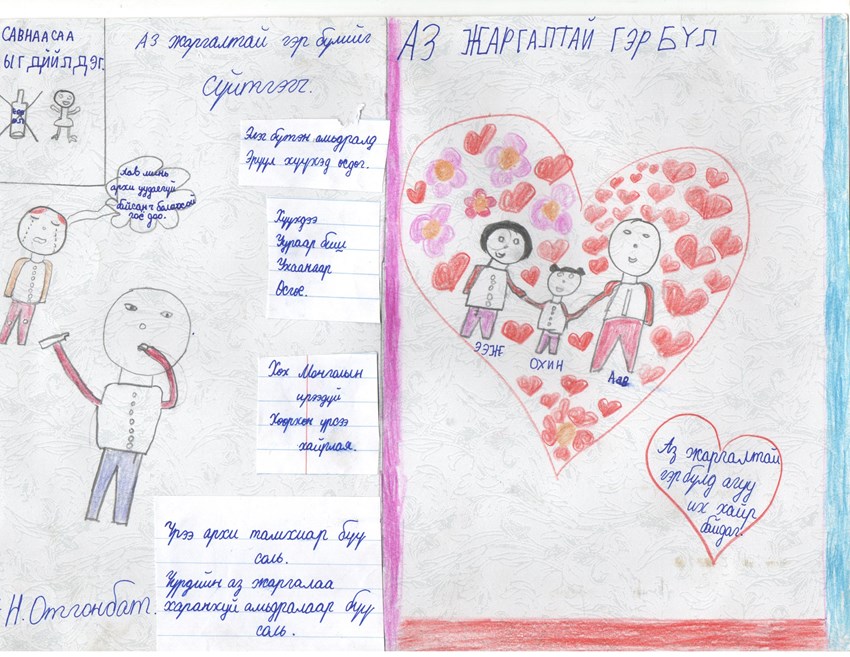 САВНААСАА
ЫГДИЙЛДЭГ.
Аз жаргалтай гэр бүлийг
Сүйтгэгч.
Аав минь
архи уудаггүй
байсан ч болоосой
гос доо.
Энх бүтэн амьдралд
Эрүүл хүүхэд өсдөг.
Хүүхдээ
Уураар биш
Ухаанаар
Өсгөе.
Хөх Монголын
ирээдүй
Хөөрхөн үрсээ
хайрлая.
Үрээ архи тамхиар бүү
соль.
Үүрдийн аз жаргалаа
харанхуй амьдралаар бүү
соль.
Н.Отгонбат.
АЗ ЖАРГАЛТАЙ ГЭР БҮЛ
ЭЭЖ
ОХИН
Аав
Аз жаргалтай
гэр бүлд агуу
их хайр
байдаг.